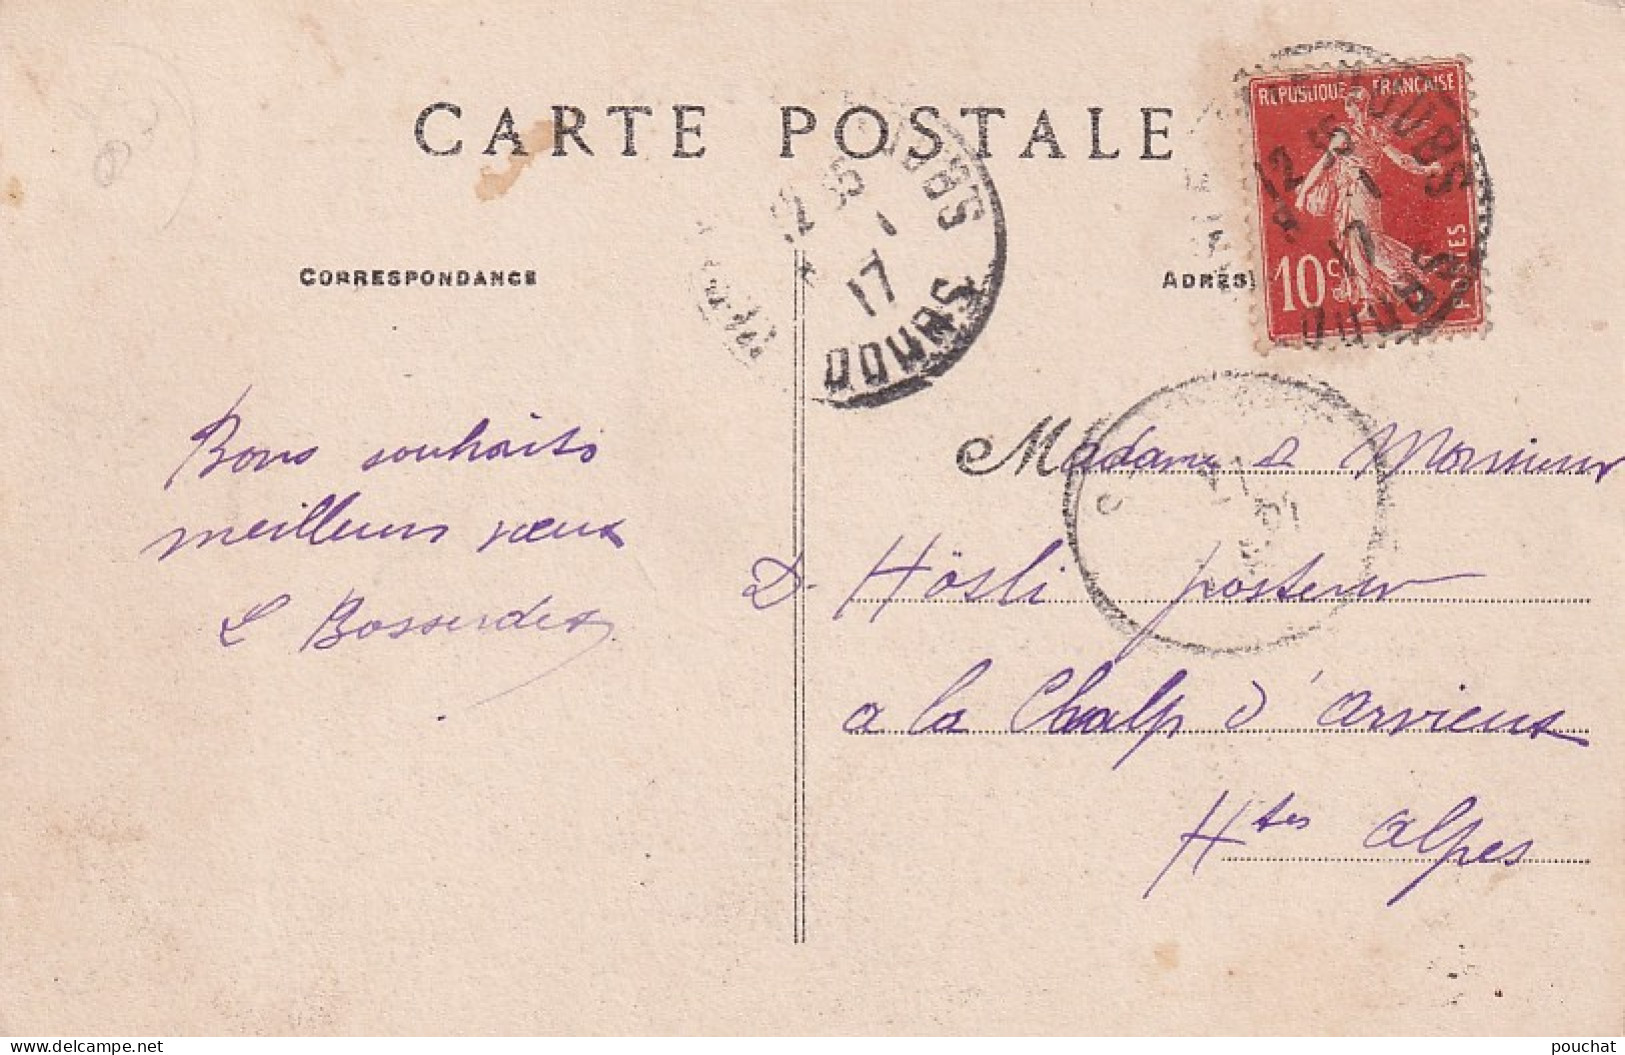 CARTE POSTALE
CORRESPONDANCE
ADRES
RÉPUBLIQUE FRANÇAISE
10c
POSTES
12 35
1
17
DOUBS
12 35
1
17
DOUBS
Bons souhaits
meilleurs vœux
L
Madame & Monsieur
D. Hösli pasteur
a la Chalp d'Arvieux
Htes Alpes
delcampe.net
pouchat